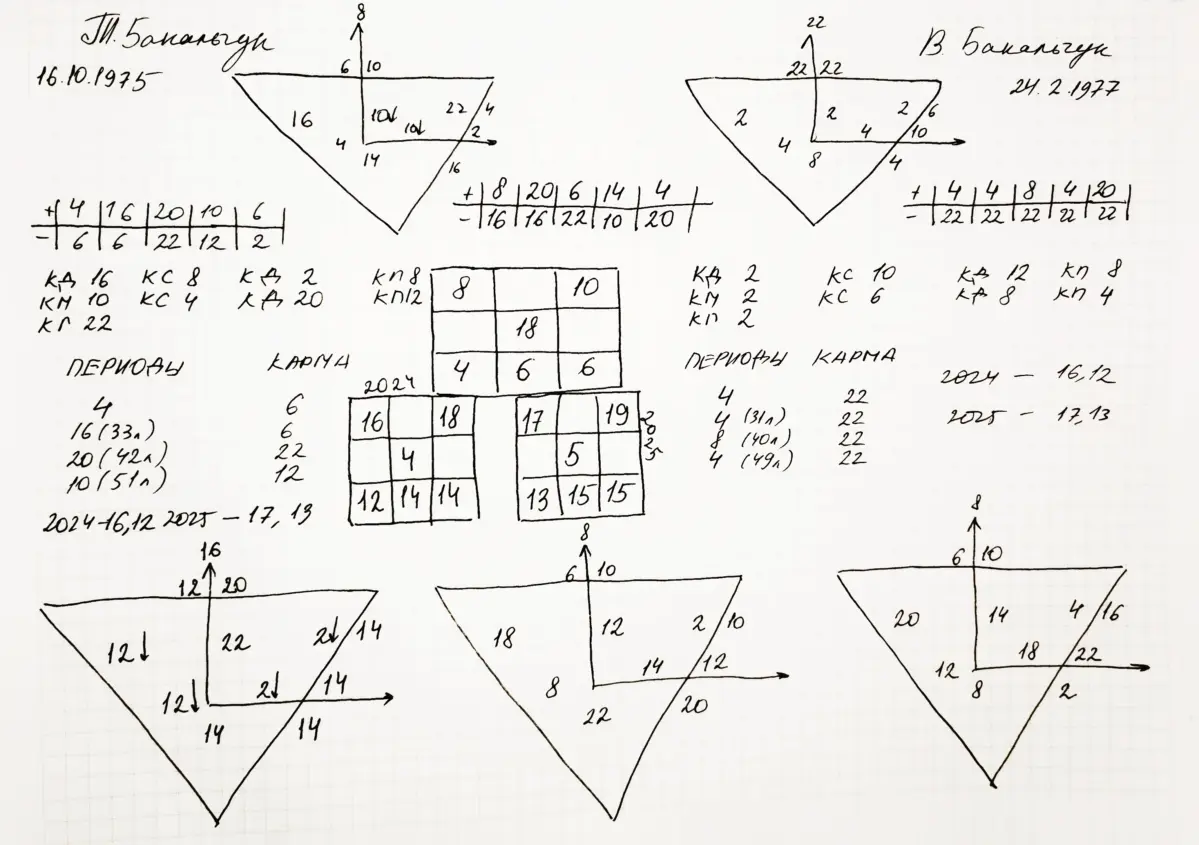 Т. Бакальчук
16.10.1975
8
6 10
16
10↓
22 4
10↓ 2
4
14
16
В. Бакальчук
24.2.1977
22
22 22
2
2
2 6
4 10
4
8
4
+ 4 16 20 10 6
- 6 6 22 12 2
+ 8 20 6 14 4
- 16 16 22 10 20
+ 4 4 8 4 20
- 22 22 22 22 22
КД 16 КС 8 КД 2 КП 8
КМ 10 КС 4 КД 20 КП12
КП 22
8 10
18
4 6 6
КД 2 КС 10 КД 12 КП 8
КМ 2 КС 6 КД 8 КП 4
КП 2
ПЕРИОДЫ КАРМА
4 6
16 (33л) 6
20 (42л) 22
10 (51л) 12
2024-16,12 2025 - 17, 13
2024
16 18
4
12 14 14
2025
17 19
5
13 15 15
ПЕРИОДЫ КАРМА
4 22
4 (31л) 22
8 (40л) 22
4 (49л) 22
2024 - 16,12
2025 - 17,13
16
12 20
12↓
22
2↓ 14
12↓
2↓ 14
14
14
8
6 10
18
12
2 10
14 12
8
22
20
8
6 10
20
14
4 16
18 22
12
8
2